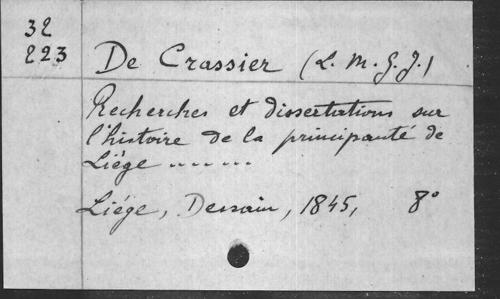 32
223
De Crassier (L. M. G. J.)
Recherches et dissertations sur
l'histoire de la principauté de
Liége .......
Liége, Dessain, 1845, 8°